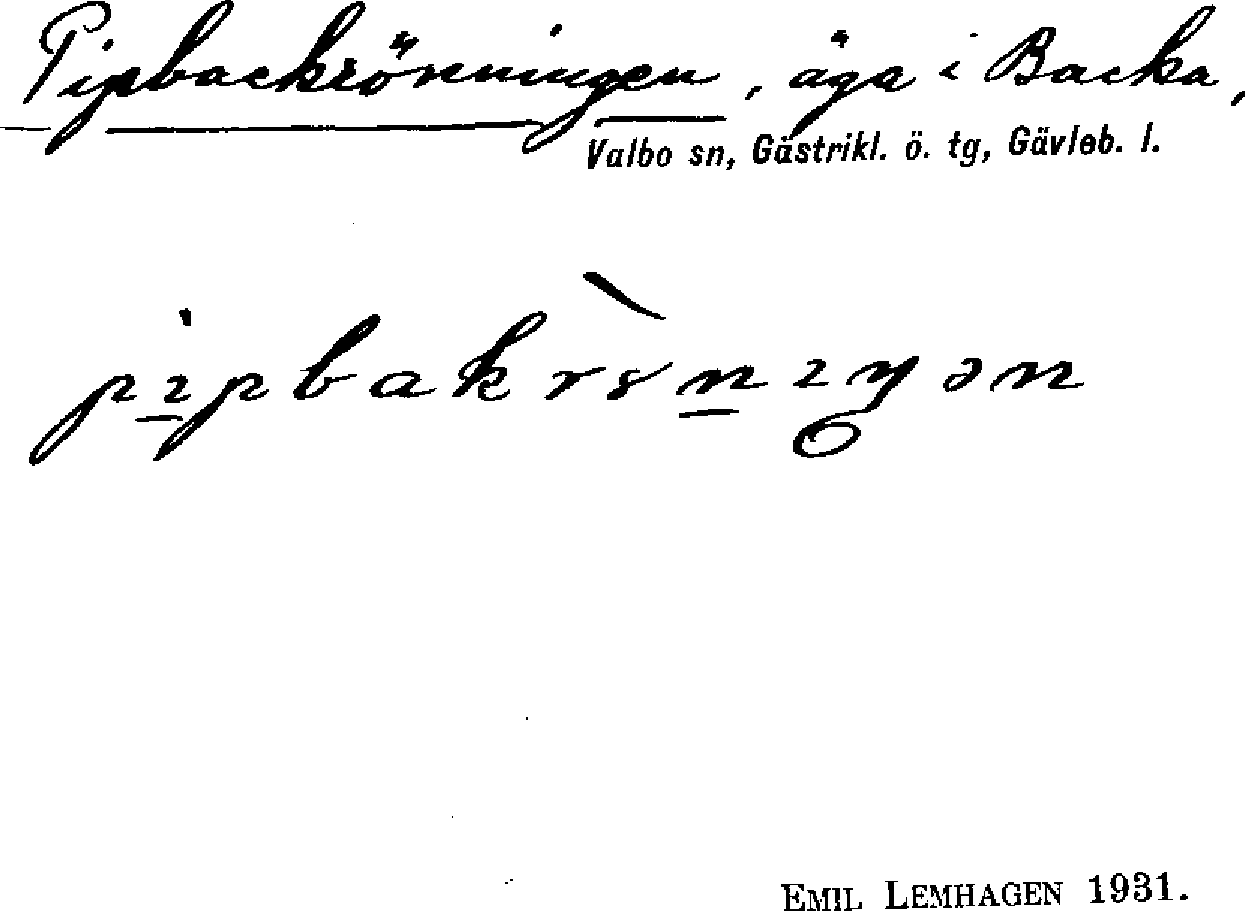 Pipbackrönningen, äga i Backa,
Valbo sn, Gästrikl. ö. tg, Gävleb. l.
EMIL LEMHAGEN 1931.